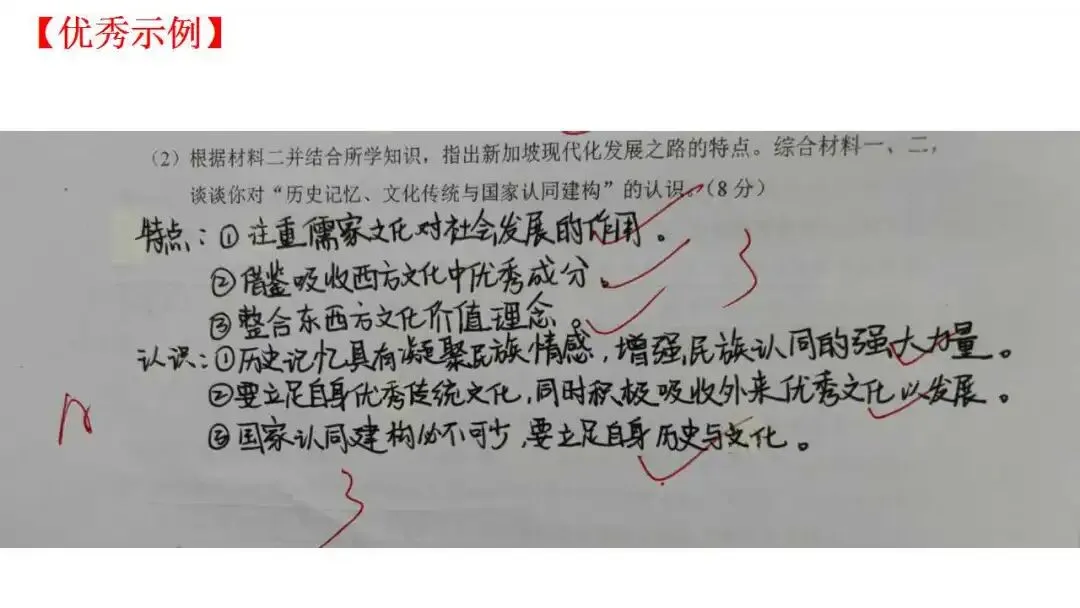 【优秀示例】
(2)根据材料二并结合所学知识，指出新加坡现代化发展之路的特点。综合材料一、二，
谈谈你对“历史记忆、文化传统与国家认同建构”的认识。(8分)
特点：①注重儒家文化对社会发展的作用。
②借鉴吸收西方文化中优秀成分。
3
③整合东西方文化价值理念。
认识：①历史记忆具有凝聚民族情感，增强民族认同的强大力量。
②要立足自身优秀传统文化，同时积极吸收外来优秀文化以发展。
③国家认同建构必不可少，要立足自身历史与文化。
3